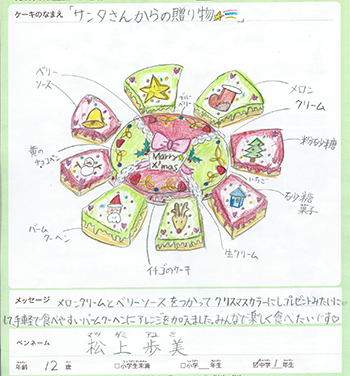 ケーキのなまえ「サンタさんからの贈り物」
ベリー
ソース
ブルー
ベリー
メロン
クリーム
黄の
チョコペン
粉砂糖
Merry
X'mas
いちご
砂糖
菓子
バーム
クーヘン
生クリーム
イチゴのケーキ
メッセージ メロンクリームとベリーソースをつかってクリスマスカラーにしプレゼントみたいに♡
して手軽で食べやすいバームクーヘンにアレンジをかけました。みんなで楽しく食べたいです♡
マツ ガミ アユ ミ
ペンネーム 松上歩美
年齢 12 歳 □小学生未満 □小学__年生 ☑中学1年生